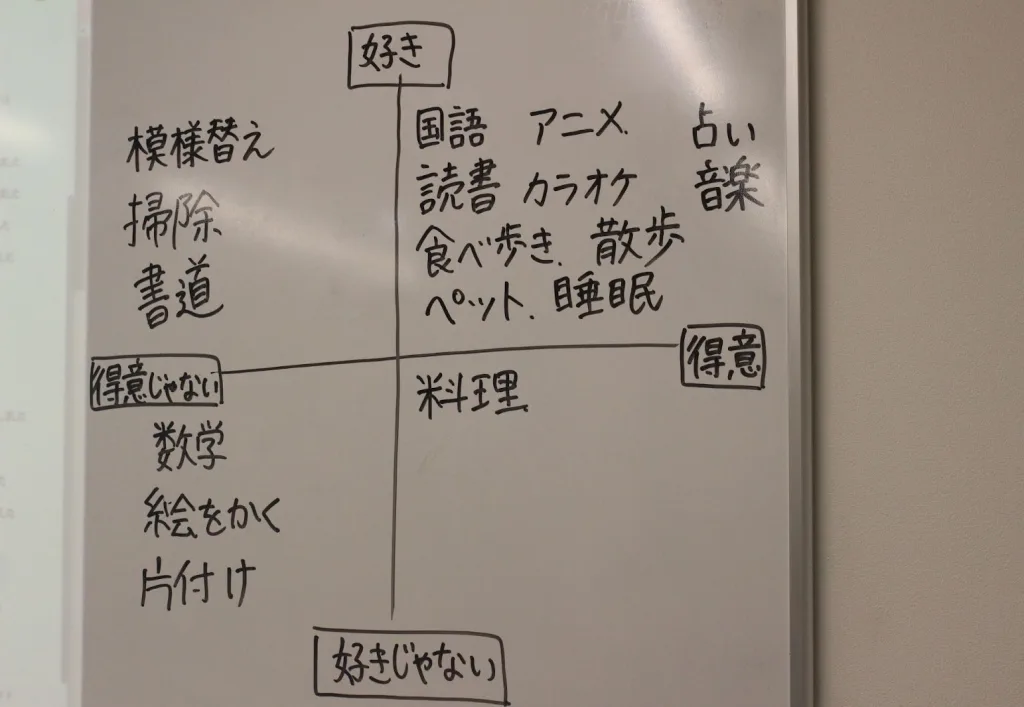 好き
模様替え
掃除
書道
国語 アニメ 占い
読書 カラオケ 音楽
食べ歩き 散歩
ペット 睡眠
得意じゃない
得意
数学
絵をかく
片付け
料理
好きじゃない